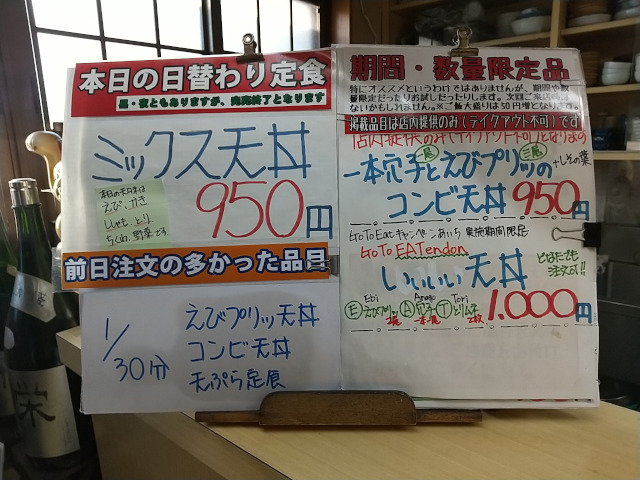 本日の日替わり定食
昼・夜ともありますが、完売終了となります
ミックス天丼
本日の天丼は
えび、かき
ししゃも、とり
ちくわ、野菜です
950円
前日注文の多かった品目
1/30分
えびプリッ天丼
コンビ天丼
天ぷら定食
期間・数量限定品
特にオススメというわけではありませんが、期間や数
量限定だったりお試しだったりします。次回ご来店時は
ないかもしれません。※ご飯大盛りは50円増となります
掲載品目は店内提供のみ(テイクアウト不可)です
店内提供のみ(テイクアウト不可)となります
一本穴子とえびプリッの
一尾
三尾
+しその葉
コンビ天丼 950円
GoToEatキャンペーンあいち 実施期間限定
GoTo EATendon
いいいい天丼
どなたでも
注文可!!
Ebi Anago Tori
Ⓔえびプリッ Ⓐ穴子 Ⓣとりムネ
2尾 一本 2枚
1.000円
栄